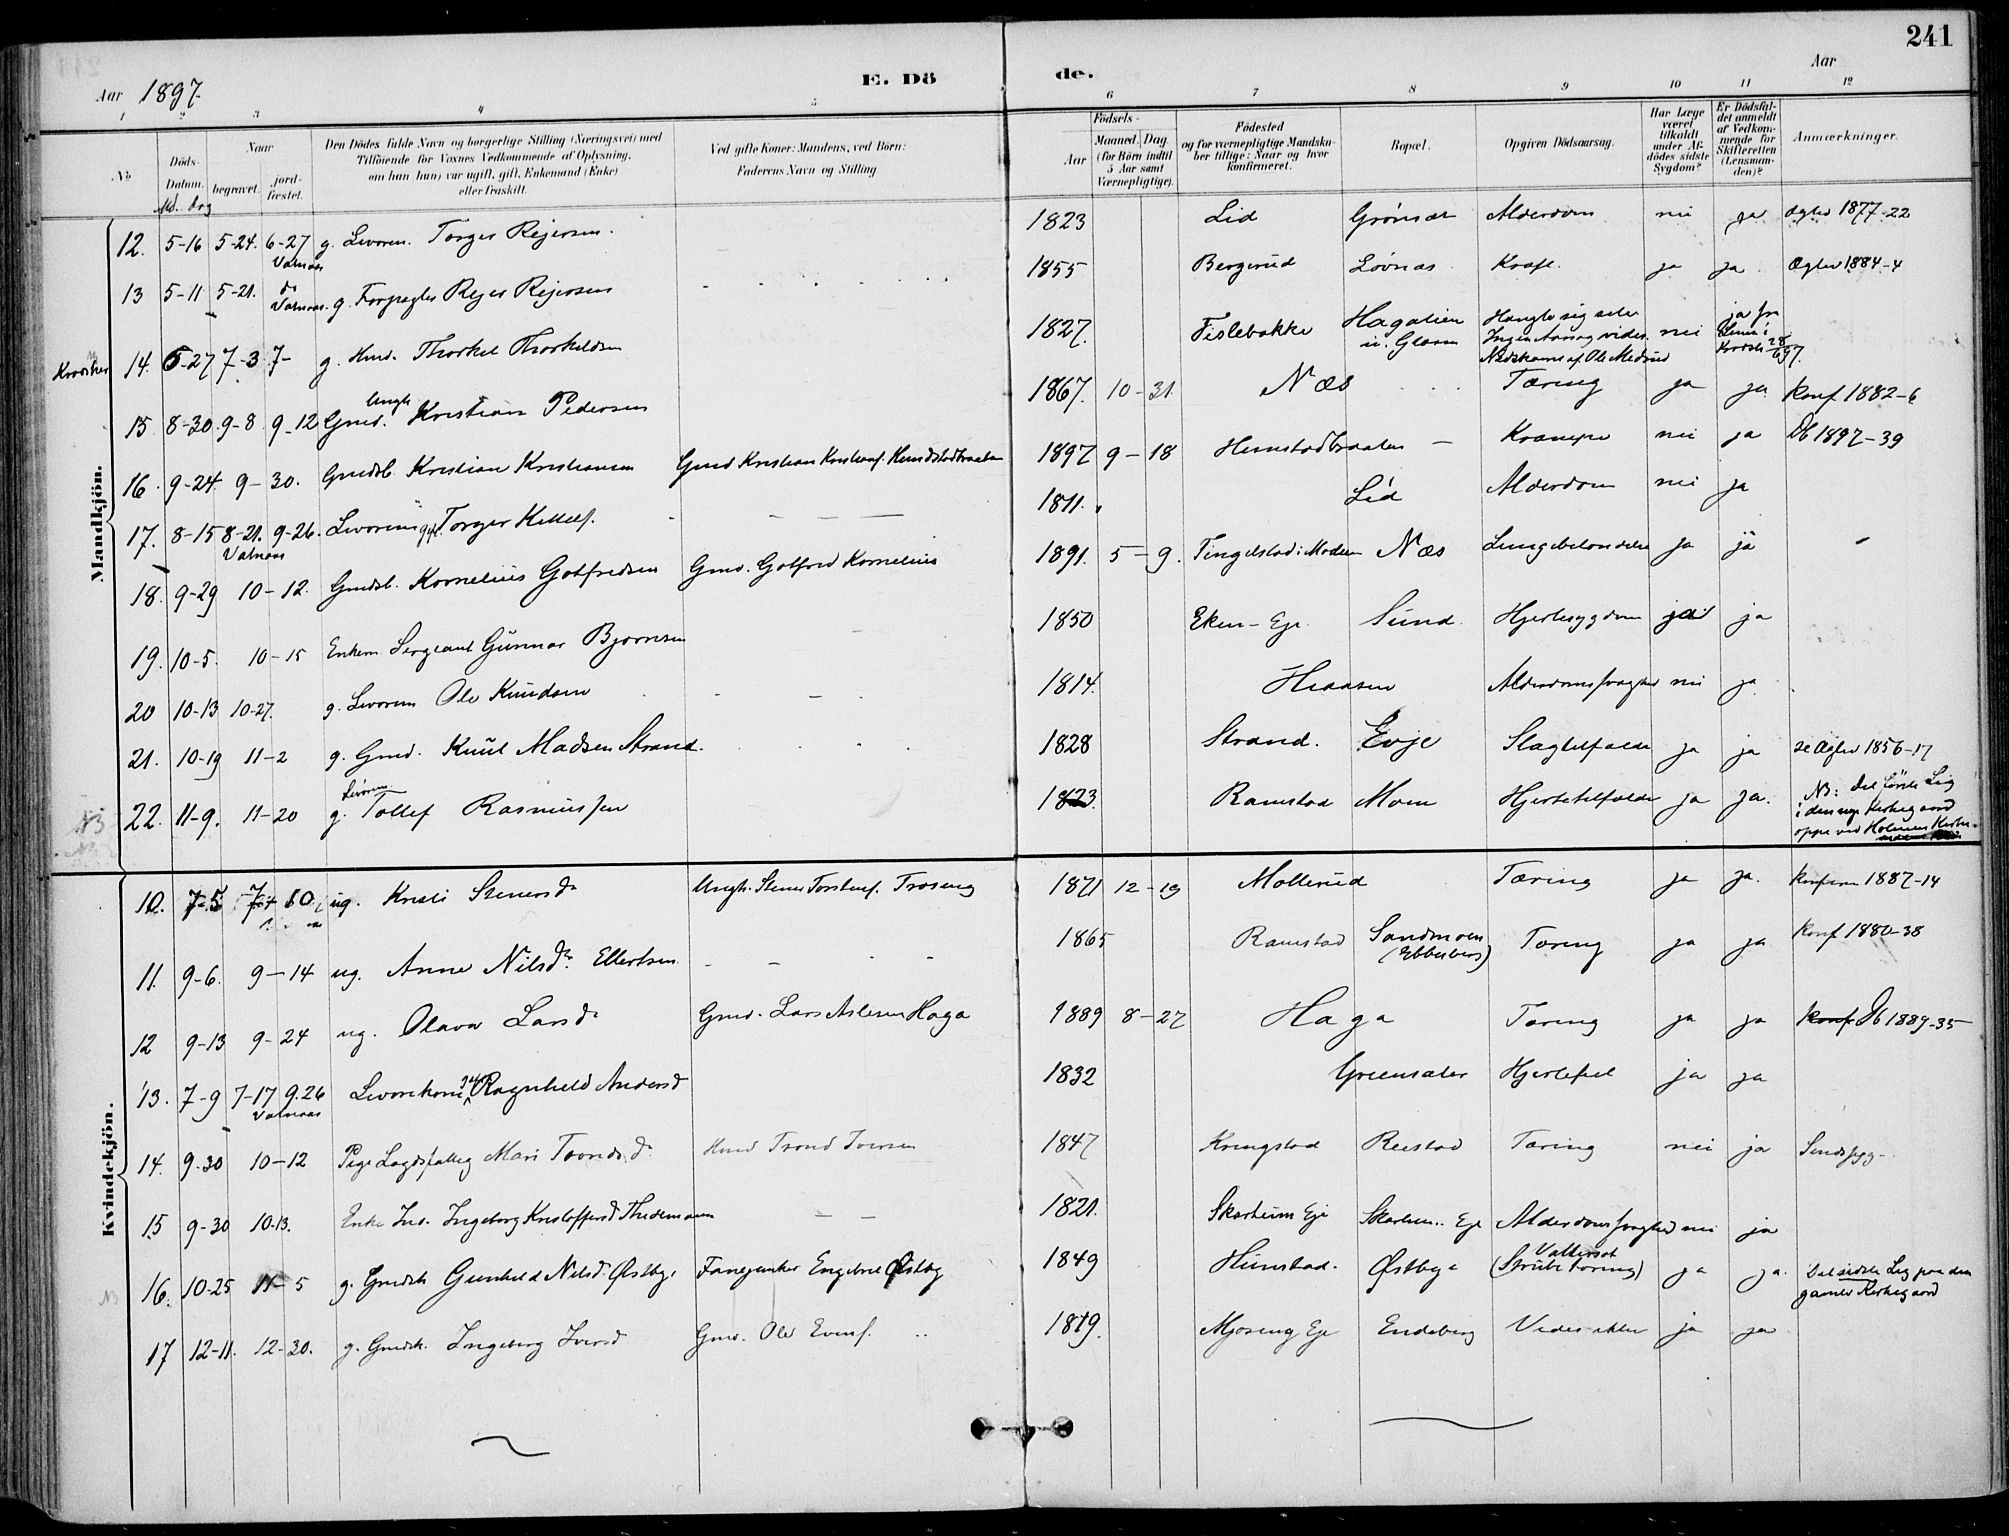 241
Aar 1897.
E. Dö de.
Aar
1 2 3 4 5 6 7 8 9 10 11 12
No
Döds-
Datum.
Md. dag
Naar
begravet.
jord-
fæstet.
Den Dödes fulde Navn og borgerlige Stilling (Næringsvei) med
Tilföiende for Voxnes Vedkommende af Oplysning,
om han (hun) var ugift, gift, Enkemand (Enke)
eller fraskilt.
Ved gifte Koner: Mandens, ved Börn:
Faderens Navn og Stilling
Födsels-
Aar
Maaned. Dag
(for Börn indtil
5 Aar samt
Værnepligtige).
Födested
og for værnepligtige Mandska-
ber tillige: Naar og hvor
konfirmeret.
Bopæl.
Opgiven Dödsaarsag.
Har Læge
været
tilkaldt
under Af-
dödes sidste
Sygdom?
Er Dödsfal-
det anmeldt
af Vedkom-
mende for
Skifteretten
(Lensman-
den)?
Anmærkninger.
Mandkjön.
12. 5-16 5-24. 6-27 g. Levorem. Torger Rejersen. 1823 Lid Grönsæt Alderdom nei ja Ægtev 1877-22
Vatnaas
13 5-11 5-21. do g. Forpagter Rejer Rejersen 1855 Bergerud Lövnæs Kræft ja ja Ægtev 1884-4
Vatnaas.
14. 5-27 7-3 7- g. Hmd. Thorkel Thorkeldsen 1827. Fislebakke Hagalien Hængte sig selv nei ja
u. Glesne
15 8-30 9-8 9-12 Ungk. Gmd. Kristian Pedersen 1867. 10-31 Næs Tæring ja ja Konf 1882-6
16 9-24 9-30. Gmdsb. Kristian Kristiansen Gmd Kristian Kristiansf. Hemstadbraaten 1897 9-18 Hemstadbraaten - Krampe nei ja Db 1897-39
17. 8-15 8-21. 9-26. Levorem gift. Torger Kittelf. 1811. Lid Alderdom nei ja
Vatnaas
18. 9-29 10-12. Gmdsb. Kornelius Gotfredsen Gmd. Gotfred Kornelius 1891. 5-9. Tingelstad i Modum Næs Lungebetændelse ja ja
19. 10-5. 10-15 Enkem. Sergeant Gunnar Bjørnsen 1850 Eken-Eje Sund. Hjertesygdom ja ja
20 10-13 10-27. g. Levorem Ole Knudsen 1814. Hiaasen Alderdomssvaghed nei ja
21. 10-19 11-2 g. Gmd. Knut Madsen Strand. 1828 Strand. Evje Slagtilfælde ja ja se Ægtev 1856-17
22. 11-9. 11-20 g. Levorem Tollef Rasmussen 1823. Ramstad Moen Hjertetilfælde ja ja. NB: Det første Lig
i den nye Kirkegaard
oppe ved Holmen Kirke.
Kvindekjön.
10. 7-5 7-10 ug. Kristi Stenersdr Ungk. Stener Torstensf. Traseng 1871 12-19 Mollerud Tæring ja ja. Konfirm 1887-14
11. 9-6. 9-14 ug. Anne Nilsdr. Ellertsen 1865 Ramstad Sandmoen Tæring ja ja Konf 1880-38
(Ebbesberg)
12 9-13 9-24 ug. Olava Larsdr Gmd. Lars Aslesen Haga 1889 8-27 Haga Tæring ja ja Konf Db 1889-35
13. 7-9 7-17 9.26 Levorekone gift Ragnhild Andersd 1832 Greensæter Hjertefeil ja ja
Vatnaas
14. 9-30 10-12 Pige Lægdsfattig Mari Trondsdr Hmd Trond Iversen 1847 Kringstad Reistad Tæring nei ja Sindssyg
15 9-30 10-13. Enke Ind. Ingeborg Kristoffersd Thidemann 1821. Skarheim Eje Skarheim.. Eje Alderdomssvaghed nei ja
16. 10-25 11-5 g. Gmdsk Gunhild Nilsd. Østbye Fanejunker Engebret Østby 1849 Hunstad. Østbye Vattersot ja ja. Det sidste Lig paa den
(Strubetæring) gamle Kirkegaard
17 12-11. 12-30. g. Gmdsk. Ingeborg Iversd Gmd. Ole Evensf. 1819. Mjøseng Eje Endeberg ja ja